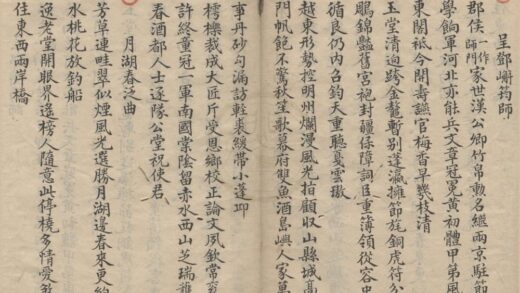 呈鄧嶰筠師
郡侯一作師門家世漢公卿竹帛勳名繼兩京駐節
學餉軍河北亦能兵文章冠冕黃初體甲第風
東閣祇今開壽讌官梅香早幾枝清
玉堂清迥跨金鼇暫別蓬瀛擁節旄銅虎符分
鵰錦豔舊宮袍封疆保障詞臣重簿領從容史
循良仍內召鈞天重聽戛雲璈
越東形勢控明州爛漫風光指顧收山縣城高
門帆飽不驚秋笙歌幕府雙魚酒島嶼人家萬
事丹砂勾漏訪輕裘緩帶小蓬邱
樗櫟裁成大匠斤受恩鄉校正論文夙欽常
許終童冠一軍南國棠陰留赤水西山芝瑞
春酒都人士遂隊公堂祝使君
月湖春泛曲
芳草連畦翠似煙風光選勝月湖邊春來更約
水桃花放釣船
逸老堂開眼界遙榜人隨意此停橈多情愛
住東西兩岸橋